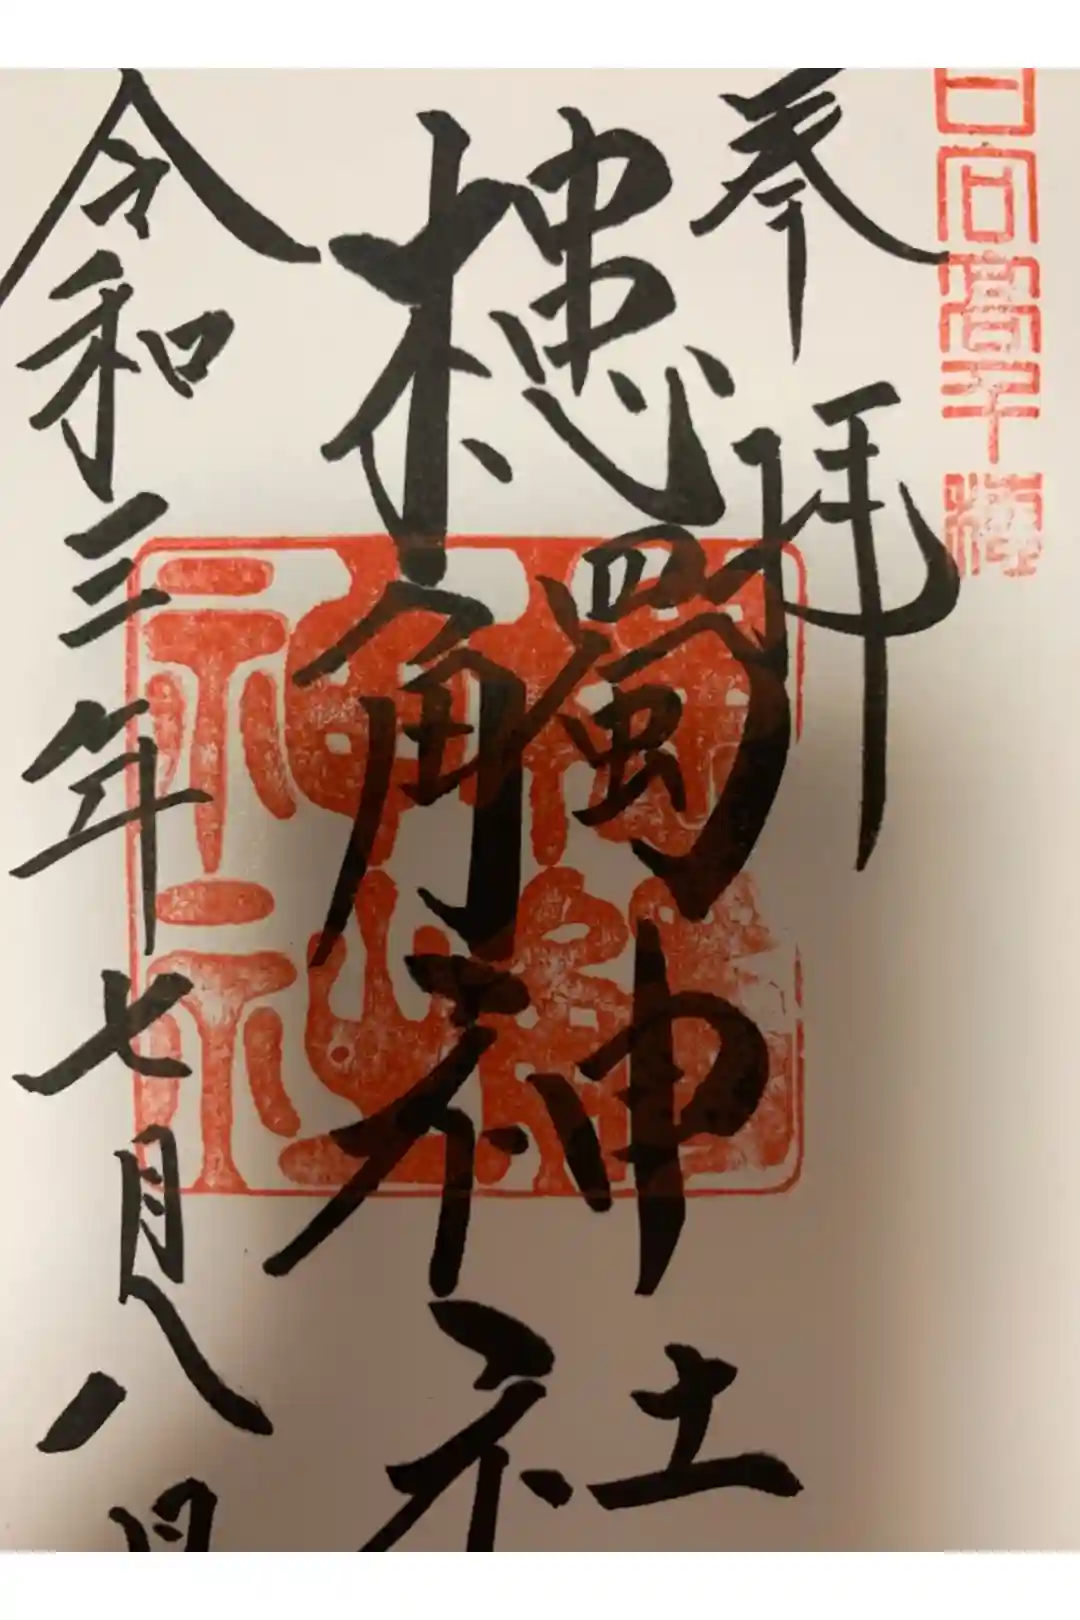 日向高千穂
奉拝
槵觸神社
令和三年七月八日